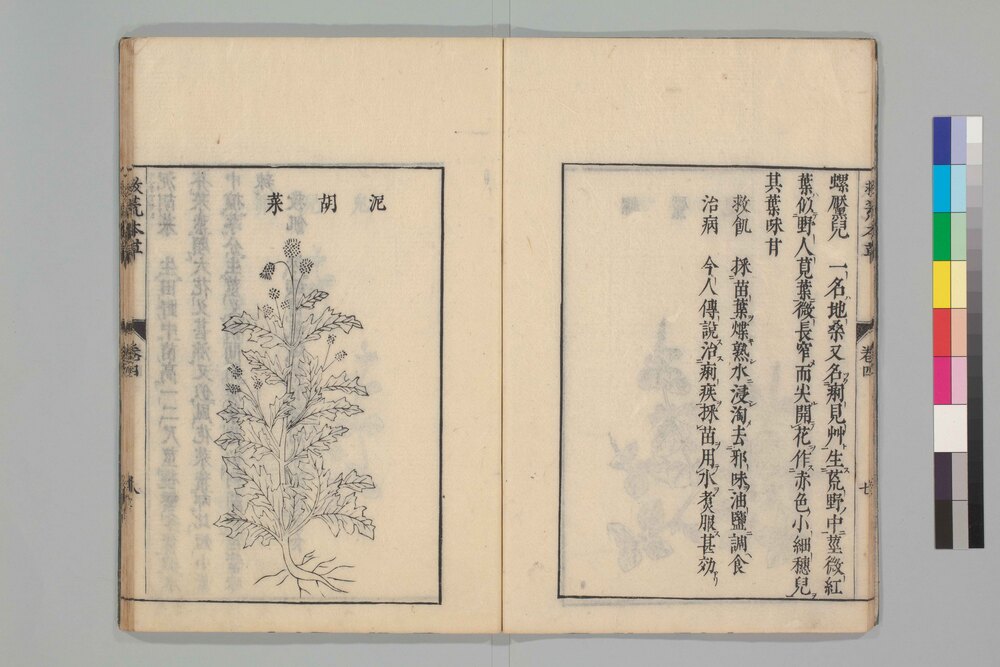 螺黶兒 一名地桑又名痢見艸生荒野中莖微紅
葉似野人莧葉微長窄而尖開花作赤色小細穗兒
其葉味甘
救飢 採苗葉煠熟水浸淘去邪味油鹽調食
治病 今人傳說治痢疾採苗用水煮服甚効
救荒本草
卷四
七
泥胡菜
救荒本草
卷四
八